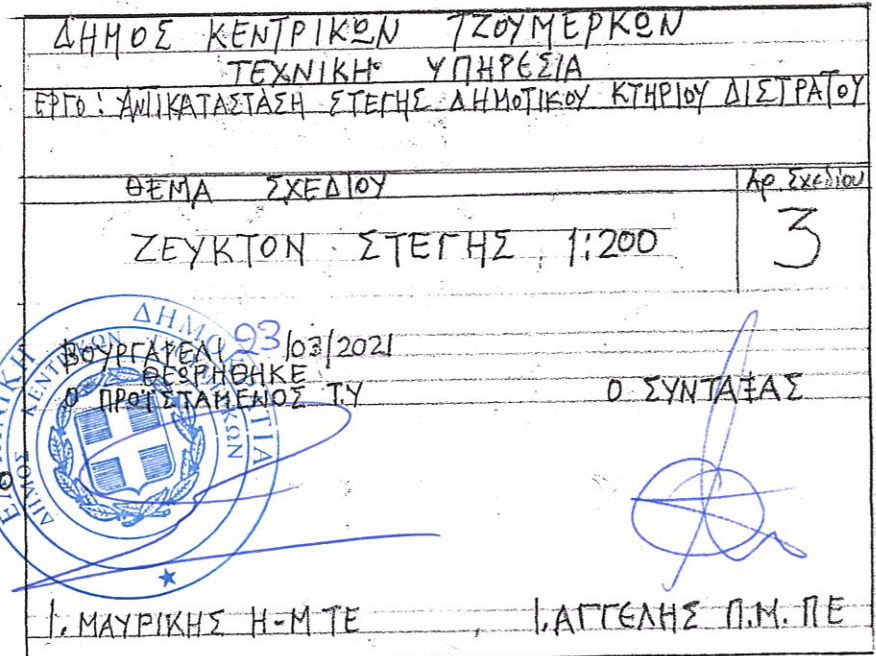 ΔΗΜΟΣ ΚΕΝΤΡΙΚΩΝ ΤΖΟΥΜΕΡΚΩΝ
ΤΕΧΝΙΚΗ ΥΠΗΡΕΣΙΑ
ΕΡΓΟ: ΑΝΤΙΚΑΤΑΣΤΑΣΗ ΣΤΕΓΗΣ ΔΗΜΟΤΙΚΟΥ ΚΤΗΡΙΟΥ ΔΙΣΤΡΑΤΟΥ
ΘΕΜΑ ΣΧΕΔΙΟΥ
Αρ. Σχεδίου
ΖΕΥΚΤΟΝ ΣΤΕΓΗΣ 1:200
3
ΒΟΥΡΓΑΡΕΛΙ 23/03/2021
ΘΕΩΡΗΘΗΚΕ
Ο ΠΡΟΪΣΤΑΜΕΝΟΣ Τ.Υ
Ο ΣΥΝΤΑΞΑΣ
ΕΛΛΗΝΙΚΗ ΔΗΜΟΚΡΑΤΙΑ
ΔΗΜΟΣ ΚΕΝΤΡΙΚΩΝ ΤΖΟΥΜΕΡΚΩΝ
Ι. ΜΑΥΡΙΚΗΣ Η-Μ ΤΕ
Ι. ΑΓΓΕΛΗΣ Π.Μ. ΠΕ